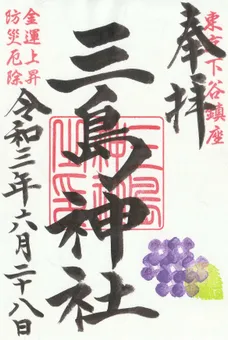 東京下谷鎮座
奉拝
三島神社
金運上昇
防災厄除
令和三年六月二十八日